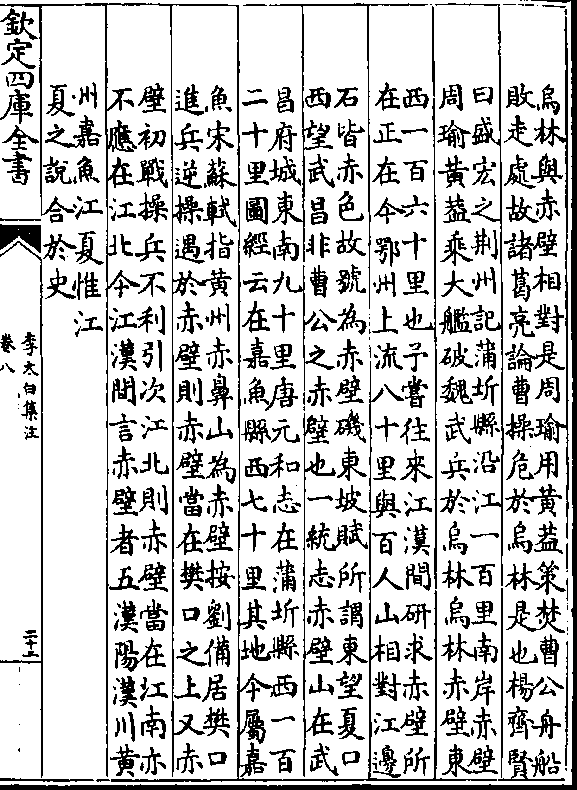 烏林與赤壁相對是周瑜用黃葢策焚曹公舟船
敗走處故諸葛亮論曹操危於烏林是也楊齊賢
曰盛宏之荆州記蒲圻縣沿江一百里南岸赤壁
周瑜黃葢乘大艦破魏武兵於烏林烏林赤壁東
西一百六十里也予嘗往來江漢間研求赤壁所
在正在今鄂州上流八十里與百人山相對江邊
石皆赤色故號為赤壁磯東坡賦所謂東望夏口
西望武昌非曹公之赤壁也一統志赤壁山在武
昌府城東南九十里唐元和志在蒲圻縣西一百
二十里圖經云在嘉魚縣西七十里其地今屬嘉
魚宋蘇軾指黃州赤鼻山為赤壁按劉備居樊口
進兵逆操遇於赤壁則赤壁當在樊口之上又赤
壁初戰操兵不利引次江北則赤壁當在江南亦
不應在江北今江漢間言赤壁者五漢陽漢川黃
州嘉魚江夏惟江
夏之說合於史
欽定四庫全書
李太白集注
卷八